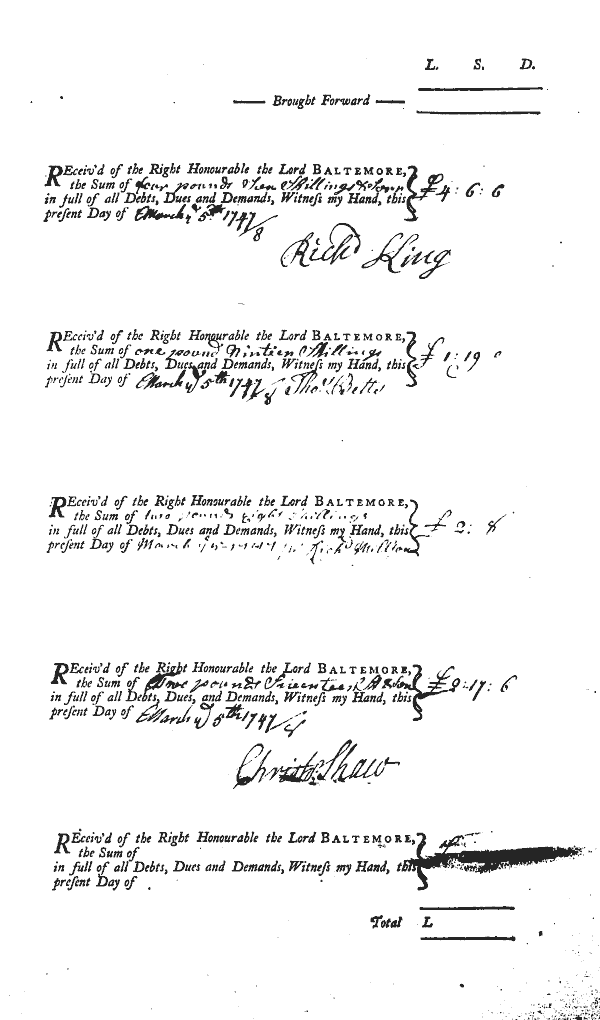 L. S. D.
Brought Forward
REceiv'd of the Right Honourable the Lord BALTEMORE,
the Sum of four pounds Shillings & £4: 6: 6
in full of all Debts, Dues and Demands, Witneſs my Hand, this
preſent Day of March yᵉ 5th 1747/8
Richd King
REceiv'd of the Right Honourable the Lord BALTEMORE,
the Sum of one pound Ninteen Shillings £1: 19
in full of all Debts, Dues and Demands, Witneſs my Hand, this
preſent Day of March yᵉ 5th 1747/8 Thos Betts
REceiv'd of the Right Honourable the Lord BALTEMORE,
the Sum of two pounds Eight Shillings £2: 8
in full of all Debts, Dues and Demands, Witneſs my Hand, this
preſent Day of March Richd
REceiv'd of the Right Honourable the Lord BALTEMORE,
the Sum of pounds £2: 17: 6
in full of all Debts, Dues, and Demands, Witneſs my Hand, this
preſent Day of March yᵉ 5th 1747/8
Christo Shaw
REceiv'd of the Right Honourable the Lord BALTEMORE,
the Sum of
in full of all Debts, Dues and Demands, Witneſs my Hand, this
preſent Day of
Total L